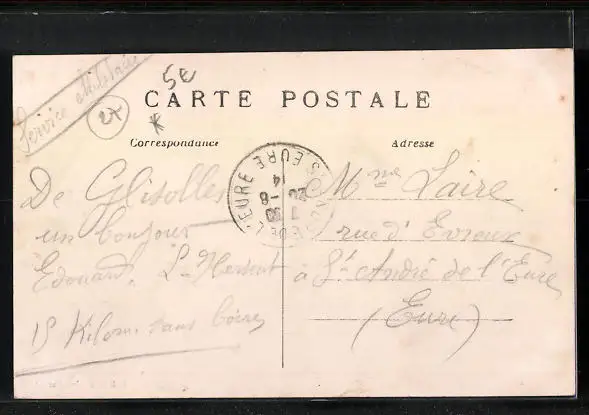 Service Militaire
5e
CARTE POSTALE
Correspondance
Adresse
De Glisolles
un bonjour
Edouard.
15 Kilom. sans boire
Mme Laire
rue d'Evreux
à St André de l'Eure
(Eure)
DE L'EURE
EURE
20 -8
14